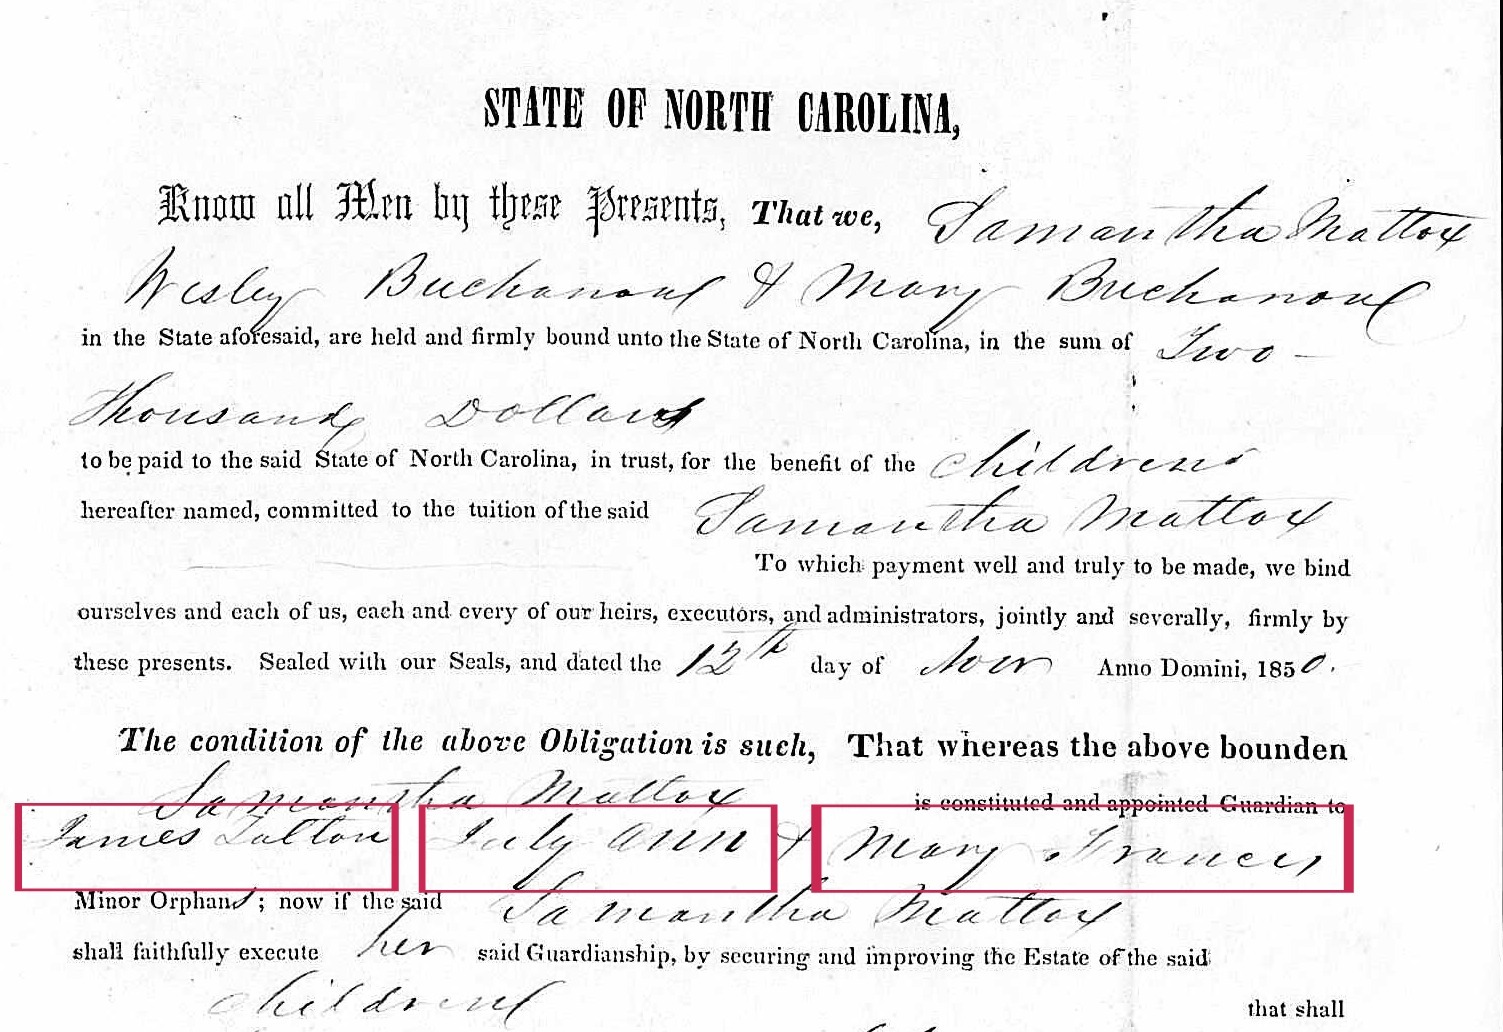 STATE OF NORTH CAROLINA,
Know all Men by these Presents, That we, Samantha Mattox
Wesley Buchanan & Mary Buchanan
in the State aforesaid, are held and firmly bound unto the State of North Carolina, in the sum of Two
Thousand Dollars
to be paid to the said State of North Carolina, in trust, for the benefit of the Childrens
hereafter named, committed to the tuition of the said Samantha Mattox
To which payment well and truly to be made, we bind
ourselves and each of us, each and every of our heirs, executors, and administrators, jointly and severally, firmly by
these presents. Sealed with our Seals, and dated the 12th day of Nov Anno Domini, 1850.
The condition of the above Obligation is such, That whereas the above bounden
Samantha Mattox is constituted and appointed Guardian to
James July Ann & Mary Frances
Minor Orphans; now if the said Samantha Mattox
shall faithfully execute her said Guardianship, by securing and improving the Estate of the said
Children that shall